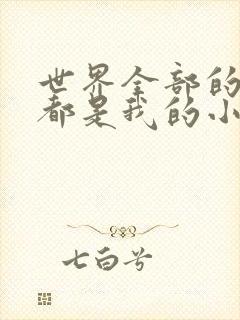 世界全部的
都是我的小
七白兮